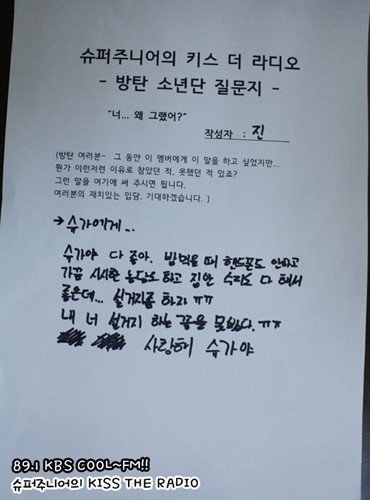 슈퍼주니어의 키스 더 라디오
- 방탄 소년단 질문지 -
“너... 왜 그랬어?”
작성자 : 진
(방탄 여러분~ 그 동안 이 멤버에게 이 말을 하고 싶었지만...
뭔가 이런저런 이유로 참았던 적, 못했던 적 있죠?
그런 말을 여기에 써 주시면 됩니다.
여러분의 재치있는 입담, 기대하겠습니다. )
→ 슈가에게...
슈가야 다 좋아. 밥먹을 때 핸드폰도 안하고
가끔 시시한 농담도 하고 집안 수리도 다 해서
좋은데... 설거지좀 하라 ㅠㅠ
내 너 설거지 하는 꼴을 못봤다. ㅠㅠ
사랑해 슈가야
89.1 KBS COOL~FM!!
슈퍼주니어의 KISS THE RADIO